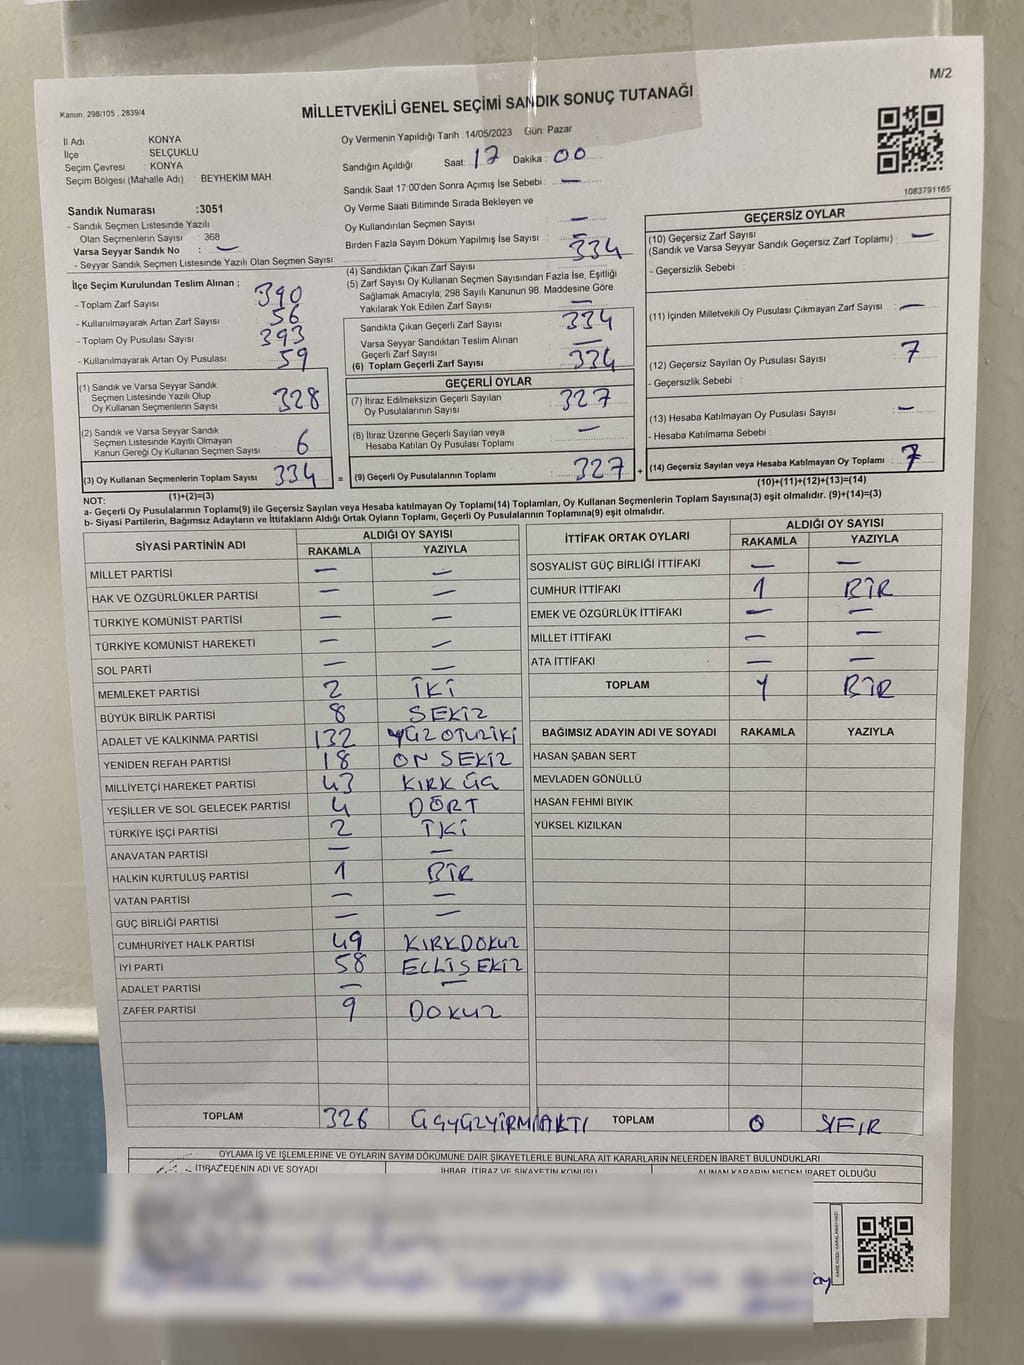 M/2
Kanun. 298/105 , 2839/4
MİLLETVEKİLİ GENEL SEÇİMİ SANDIK SONUÇ TUTANAĞI
İl Adı KONYA
İlçe SELÇUKLU
Seçim Çevresi : KONYA
Seçim Bölgesi (Mahalle Adı) : BEYHEKİM MAH.
Sandık Numarası :3051
- Sandık Seçmen Listesinde Yazılı
Olan Seçmenlerin Sayısı : 368
Varsa Seyyar Sandık No : —
- Seyyar Sandık Seçmen Listesinde Yazılı Olan Seçmen Sayısı
İlçe Seçim Kurulundan Teslim Alınan ;
- Toplam Zarf Sayısı : 390
- Kullanılmayarak Artan Zarf Sayısı : 56
- Toplam Oy Pusulası Sayısı : 393
- Kullanılmayarak Artan Oy Pusulası : 59
(1) Sandık ve Varsa Seyyar Sandık
Seçmen Listesinde Yazılı Olup
Oy Kullanan Seçmenlerin Sayısı 328
(2) Sandık ve Varsa Seyyar Sandık
Seçmen Listesinde Kayıtlı Olmayan
Kanun Gereği Oy Kullanan Seçmen Sayısı 6
(3) Oy Kullanan Seçmenlerin Toplam Sayısı 334 =
(1)+(2)=(3)
Oy Vermenin Yapıldığı Tarih : 14/05/2023 Gün: Pazar
Sandığın Açıldığı Saat: 17 Dakika : 00
Sandık Saat 17:00'den Sonra Açımış İse Sebebi : —
Oy Verme Saati Bitiminde Sırada Bekleyen ve
Oy Kullandırılan Seçmen Sayısı : —
Birden Fazla Sayım Döküm Yapılmış İse Sayısı : —
(4) Sandıktan Çıkan Zarf Sayısı : 334
(5) Zarf Sayısı Oy Kullanan Seçmen Sayısından Fazla İse, Eşitliği
Sağlamak Amacıyla; 298 Sayılı Kanunun 98. Maddesine Göre
Yakılarak Yok Edilen Zarf Sayısı : —
Sandıkta Çıkan Geçerli Zarf Sayısı : 334
Varsa Seyyar Sandıktan Teslim Alınan
Geçerli Zarf Sayısı : —
(6) Toplam Geçerli Zarf Sayısı : 334
GEÇERLİ OYLAR
(7) İtiraz Edilmeksizin Geçerli Sayılan
Oy Pusulalarının Sayısı : 327
(8) İtiraz Üzerine Geçerli Sayılan veya
Hesaba Katılan Oy Pusulası Toplamı : —
(9) Geçerli Oy Pusulalarının Toplamı : 327 +
1083791165
GEÇERSİZ OYLAR
(10) Geçersiz Zarf Sayısı
(Sandık ve Varsa Seyyar Sandık Geçersiz Zarf Toplamı) : —
- Geçersizlik Sebebi :
(11) İçinden Milletvekili Oy Pusulası Çıkmayan Zarf Sayısı : —
(12) Geçersiz Sayılan Oy Pusulası Sayısı : 7
- Geçersizlik Sebebi :
(13) Hesaba Katılmayan Oy Pusulası Sayısı : —
- Hesaba Katılmama Sebebi :
(14) Geçersiz Sayılan veya Hesaba Katılmayan Oy Toplamı : 7
(10)+(11)+(12)+(13)=(14)
NOT:
a- Geçerli Oy Pusulalarının Toplamı(9) ile Geçersiz Sayılan veya Hesaba katılmayan Oy Toplamı(14) Toplamları, Oy Kullanan Seçmenlerin Toplam Sayısına(3) eşit olmalıdır. (9)+(14)=(3)
b- Siyasi Partilerin, Bağımsız Adayların ve İttifakların Aldığı Ortak Oyların Toplamı, Geçerli Oy Pusulalarının Toplamına(9) eşit olmalıdır.
SİYASİ PARTİNİN ADI ALDIĞI OY SAYISI
RAKAMLA YAZIYLA
MİLLET PARTİSİ — —
HAK VE ÖZGÜRLÜKLER PARTİSİ — —
TÜRKİYE KOMÜNİST PARTİSİ — —
TÜRKİYE KOMÜNİST HAREKETİ — —
SOL PARTİ — —
MEMLEKET PARTİSİ 2 İKİ
BÜYÜK BİRLİK PARTİSİ 8 SEKİZ
ADALET VE KALKINMA PARTİSİ 132 YÜZOTUZİKİ
YENİDEN REFAH PARTİSİ 18 ON SEKİZ
MİLLİYETÇİ HAREKET PARTİSİ 43 KIRK ÜÇ
YEŞİLLER VE SOL GELECEK PARTİSİ 4 DÖRT
TÜRKİYE İŞÇİ PARTİSİ 2 İKİ
ANAVATAN PARTİSİ — —
HALKIN KURTULUŞ PARTİSİ 1 BİR
VATAN PARTİSİ — —
GÜÇ BİRLİĞİ PARTİSİ — —
CUMHURİYET HALK PARTİSİ 49 KIRKDOKUZ
İYİ PARTİ 58 ELLİSEKİZ
ADALET PARTİSİ — —
ZAFER PARTİSİ 9 DOKUZ
TOPLAM 326 ÜÇYÜZYİRMİALTI
İTTİFAK ORTAK OYLARI ALDIĞI OY SAYISI
RAKAMLA YAZIYLA
SOSYALİST GÜÇ BİRLİĞİ İTTİFAKI — —
CUMHUR İTTİFAKI 1 BİR
EMEK VE ÖZGÜRLÜK İTTİFAKI — —
MİLLET İTTİFAKI — —
ATA İTTİFAKI — —
TOPLAM 1 BİR
BAĞIMSIZ ADAYIN ADI VE SOYADI RAKAMLA YAZIYLA
HASAN ŞABAN SERT
MEVLADEN GÖNÜLLÜ
HASAN FEHMİ BIYIK
YÜKSEL KIZILKAN
TOPLAM 0 SIFIR
OYLAMA İŞ VE İŞLEMLERİNE VE OYLARIN SAYIM DÖKÜMÜNE DAİR ŞİKAYETLERLE BUNLARA AİT KARARLARIN NELERDEN İBARET BULUNDUKLARI
İTİRAZ EDENİN ADI VE SOYADI İHBAR, İTİRAZ VE ŞİKAYETİN KONUSU ALINAN KARARIN NEDEN İBARET OLDUĞU